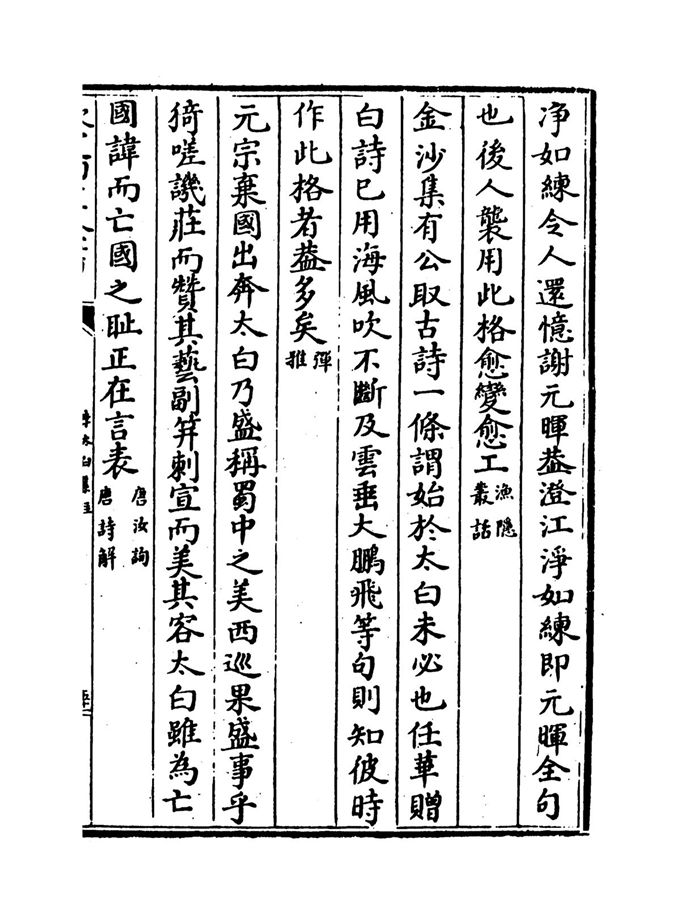 净如練令人還憶謝元暉葢澄江淨如練即元暉全句
也後人襲用此格愈變愈工漁隱叢話
金沙集有公取古詩一條謂始於太白未必也任華贈
白詩已用海風吹不斷及雲垂大鵬飛等句則知彼時
作此格者葢多矣彈雅
元宗棄國出奔太白乃盛稱蜀中之美西巡果盛事乎
猗嗟譏莊而贊其藝副笄刺宣而美其容太白雖為亡
國諱而亡國之耻正在言表唐汝詢唐詩解
李太白集注